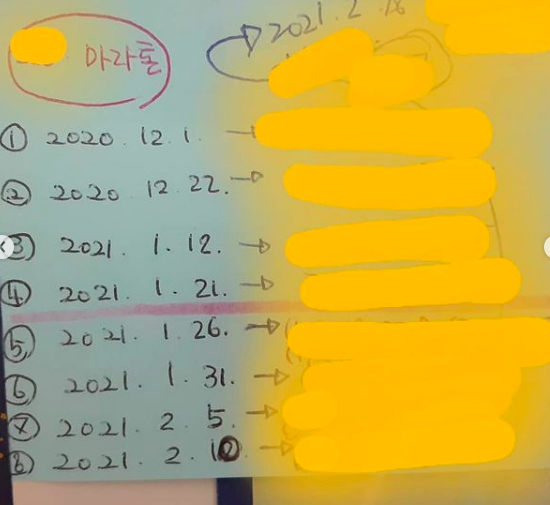 마라톤
2021. 2. 18
① 2020. 12. 1. →
② 2020. 12. 22. →
③ 2021. 1. 12. →
④ 2021. 1. 21. →
⑤ 2021. 1. 26. →
⑥ 2021. 1. 31. →
⑦ 2021. 2. 5. →
⑧ 2021. 2. 10 →